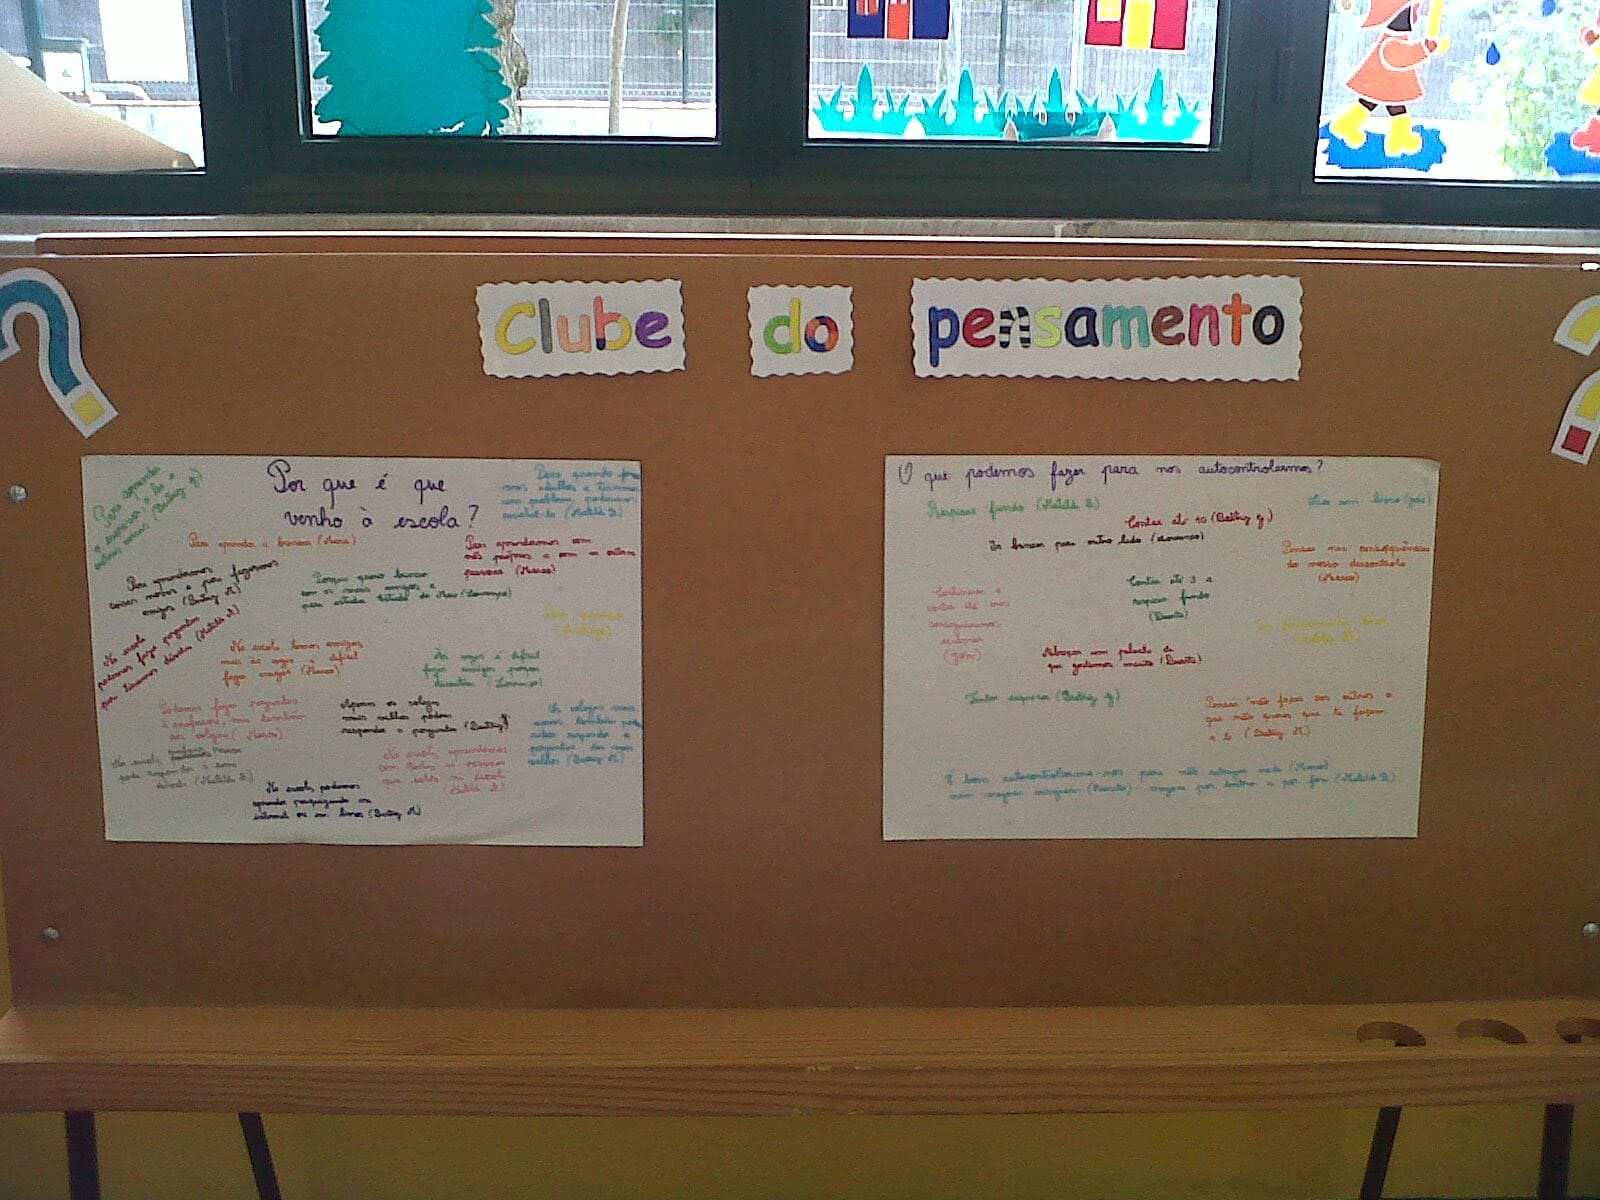 Clube do pensamento
Por que é que
venho à escola?
Para quando for
mos adultos e tivermos
um problema podermos
resolvê-lo (Matilde B.)
Para aprender a brincar (Marco)
Para aprendermos com
nós próprios e com as outras
pessoas (Marco)
Para aprendermos
coisas novas e para fazermos
amigos (Beatriz M)
Porque quero brincar
com os meus amigos e
para estudar (Lourenço)
Na escola
podemos fazer perguntas
(Matilde B)
Na escola temos amigos,
mas às vezes é difícil
fazer amigos (Marco)
Às vezes é difícil
fazer amigos porque
(Lourenço)
Podemos fazer perguntas
à professora, mas também
aos colegas (Marco)
Apenas os colegas
mais velhos podem
responder a perguntas (Beatriz
Os colegas mais
novos também
responder a
perguntas dos mais
velhos (Beatriz M.)
Na escola,
pode responder a
(Matilde B.)
Na escola, aprendemos
com todas as pessoas
que estão na escola
(Matilde B.)
Na escola, podemos
aprender pesquisando na
internet ou em livros (Beatriz M)
O que podemos fazer para nos autocontrolarmos?
Respirar fundo (Matilde B.)
Contar até 10 (Beatriz G.)
Ler um livro (José)
Ir brincar para outro lado (Lourenço)
Pensar nas consequências
do nosso descontrolo
(Marco)
Contar até 3 e
respirar fundo
(Duarte)
Continuar a
contar até nos
conseguirmos
acalmar
(José)
Abraçar um peluche de
que gostamos muito (Duarte)
Tentar esquecer (Beatriz G.)
Pensar "não faças aos outros o
que não queres que te façam
a ti (Beatriz M.)
É bom autocontrolarmo-nos para não estragar nada (Marco)
nem magoar ninguém (Duarte) magoar por dentro e por fora (Matilde B.)